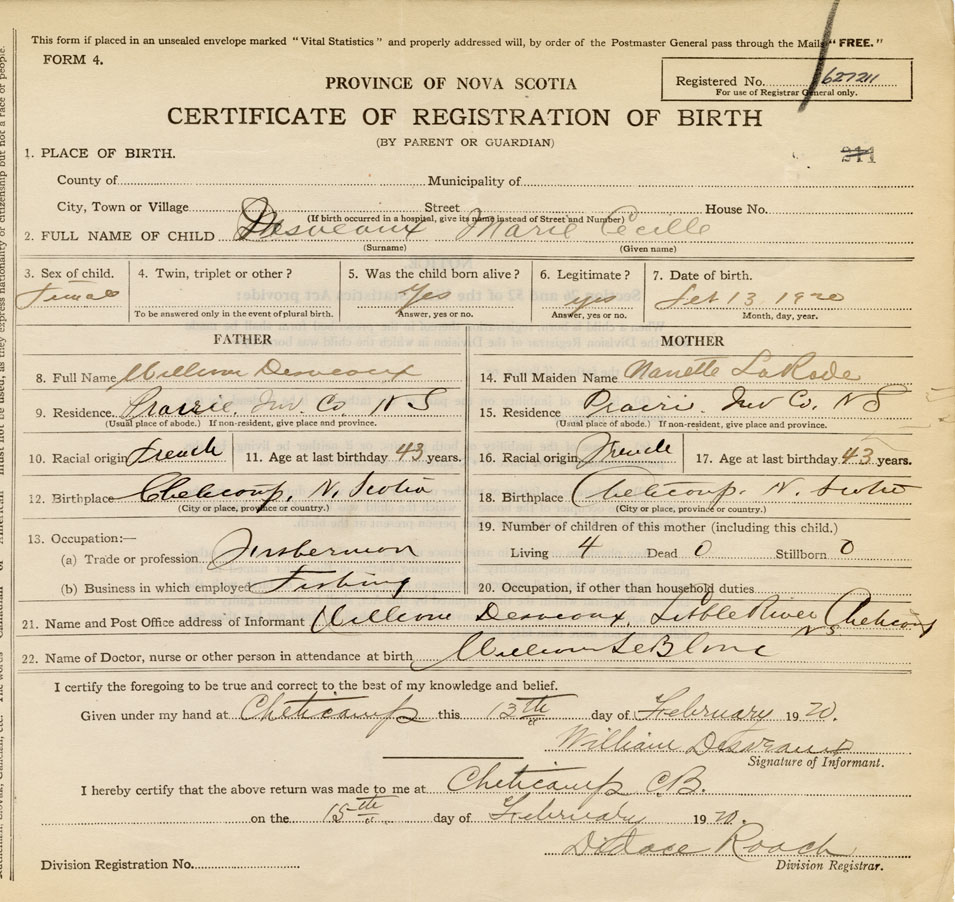 This form if placed in an unsealed envelope marked "Vital Statistics" and properly addressed will, by order of the Postmaster General pass through the Mails "FREE."
FORM 4.
Registered No. 627211
For use of Registrar General only.
PROVINCE OF NOVA SCOTIA
CERTIFICATE OF REGISTRATION OF BIRTH
(BY PARENT OR GUARDIAN)
1. PLACE OF BIRTH.
County of Municipality of
City, Town or Village Street House No.
(If birth occurred in a hospital, give its name instead of Street and Number)
2. FULL NAME OF CHILD Desveaux Marie Cecille
(Surname) (Given name)
3. Sex of child. 4. Twin, triplet or other? 5. Was the child born alive? 6. Legitimate? 7. Date of birth.
Female Yes yes 13 1920
To be answered only in the event of plural birth. Answer, yes or no. Answer, yes or no. Month, day, year.
FATHER MOTHER
8. Full Name William Desveaux 14. Full Maiden Name Nanette LaRade
9. Residence. Prairie, Inv. Co. N S 15. Residence Prairi. Inv Co, NS
(Usual place of abode.) If non-resident, give place and province. (Usual place of abode.) If non-resident, give place and province.
10. Racial origin French 11. Age at last birthday 43 years. 16. Racial origin French 17. Age at last birthday 43 years.
12. Birthplace Cheticamp, N. Scotia 18. Birthplace Cheticamp. N. Scotia
(City or place, province or country.) (City or place, province or country.)
13. Occupation:— 19. Number of children of this mother (including this child.)
(a) Trade or profession Living 4 Dead 0 Stillborn 0
(b) Business in which employed Fishing 20. Occupation, if other than household duties
21. Name and Post Office address of Informant William Desveaux, Little River Cheticamp
NS
22. Name of Doctor, nurse or other person in attendance at birth William LeBlanc
I certify the foregoing to be true and correct to the best of my knowledge and belief.
Given under my hand at Cheticamp this 13th day of February 1920.
William Desveaux
Signature of Informant.
I hereby certify that the above return was made to me at Cheticamp C.B.
on the 15th day of February 1920.
Roach
Division Registration No. Division Registrar.